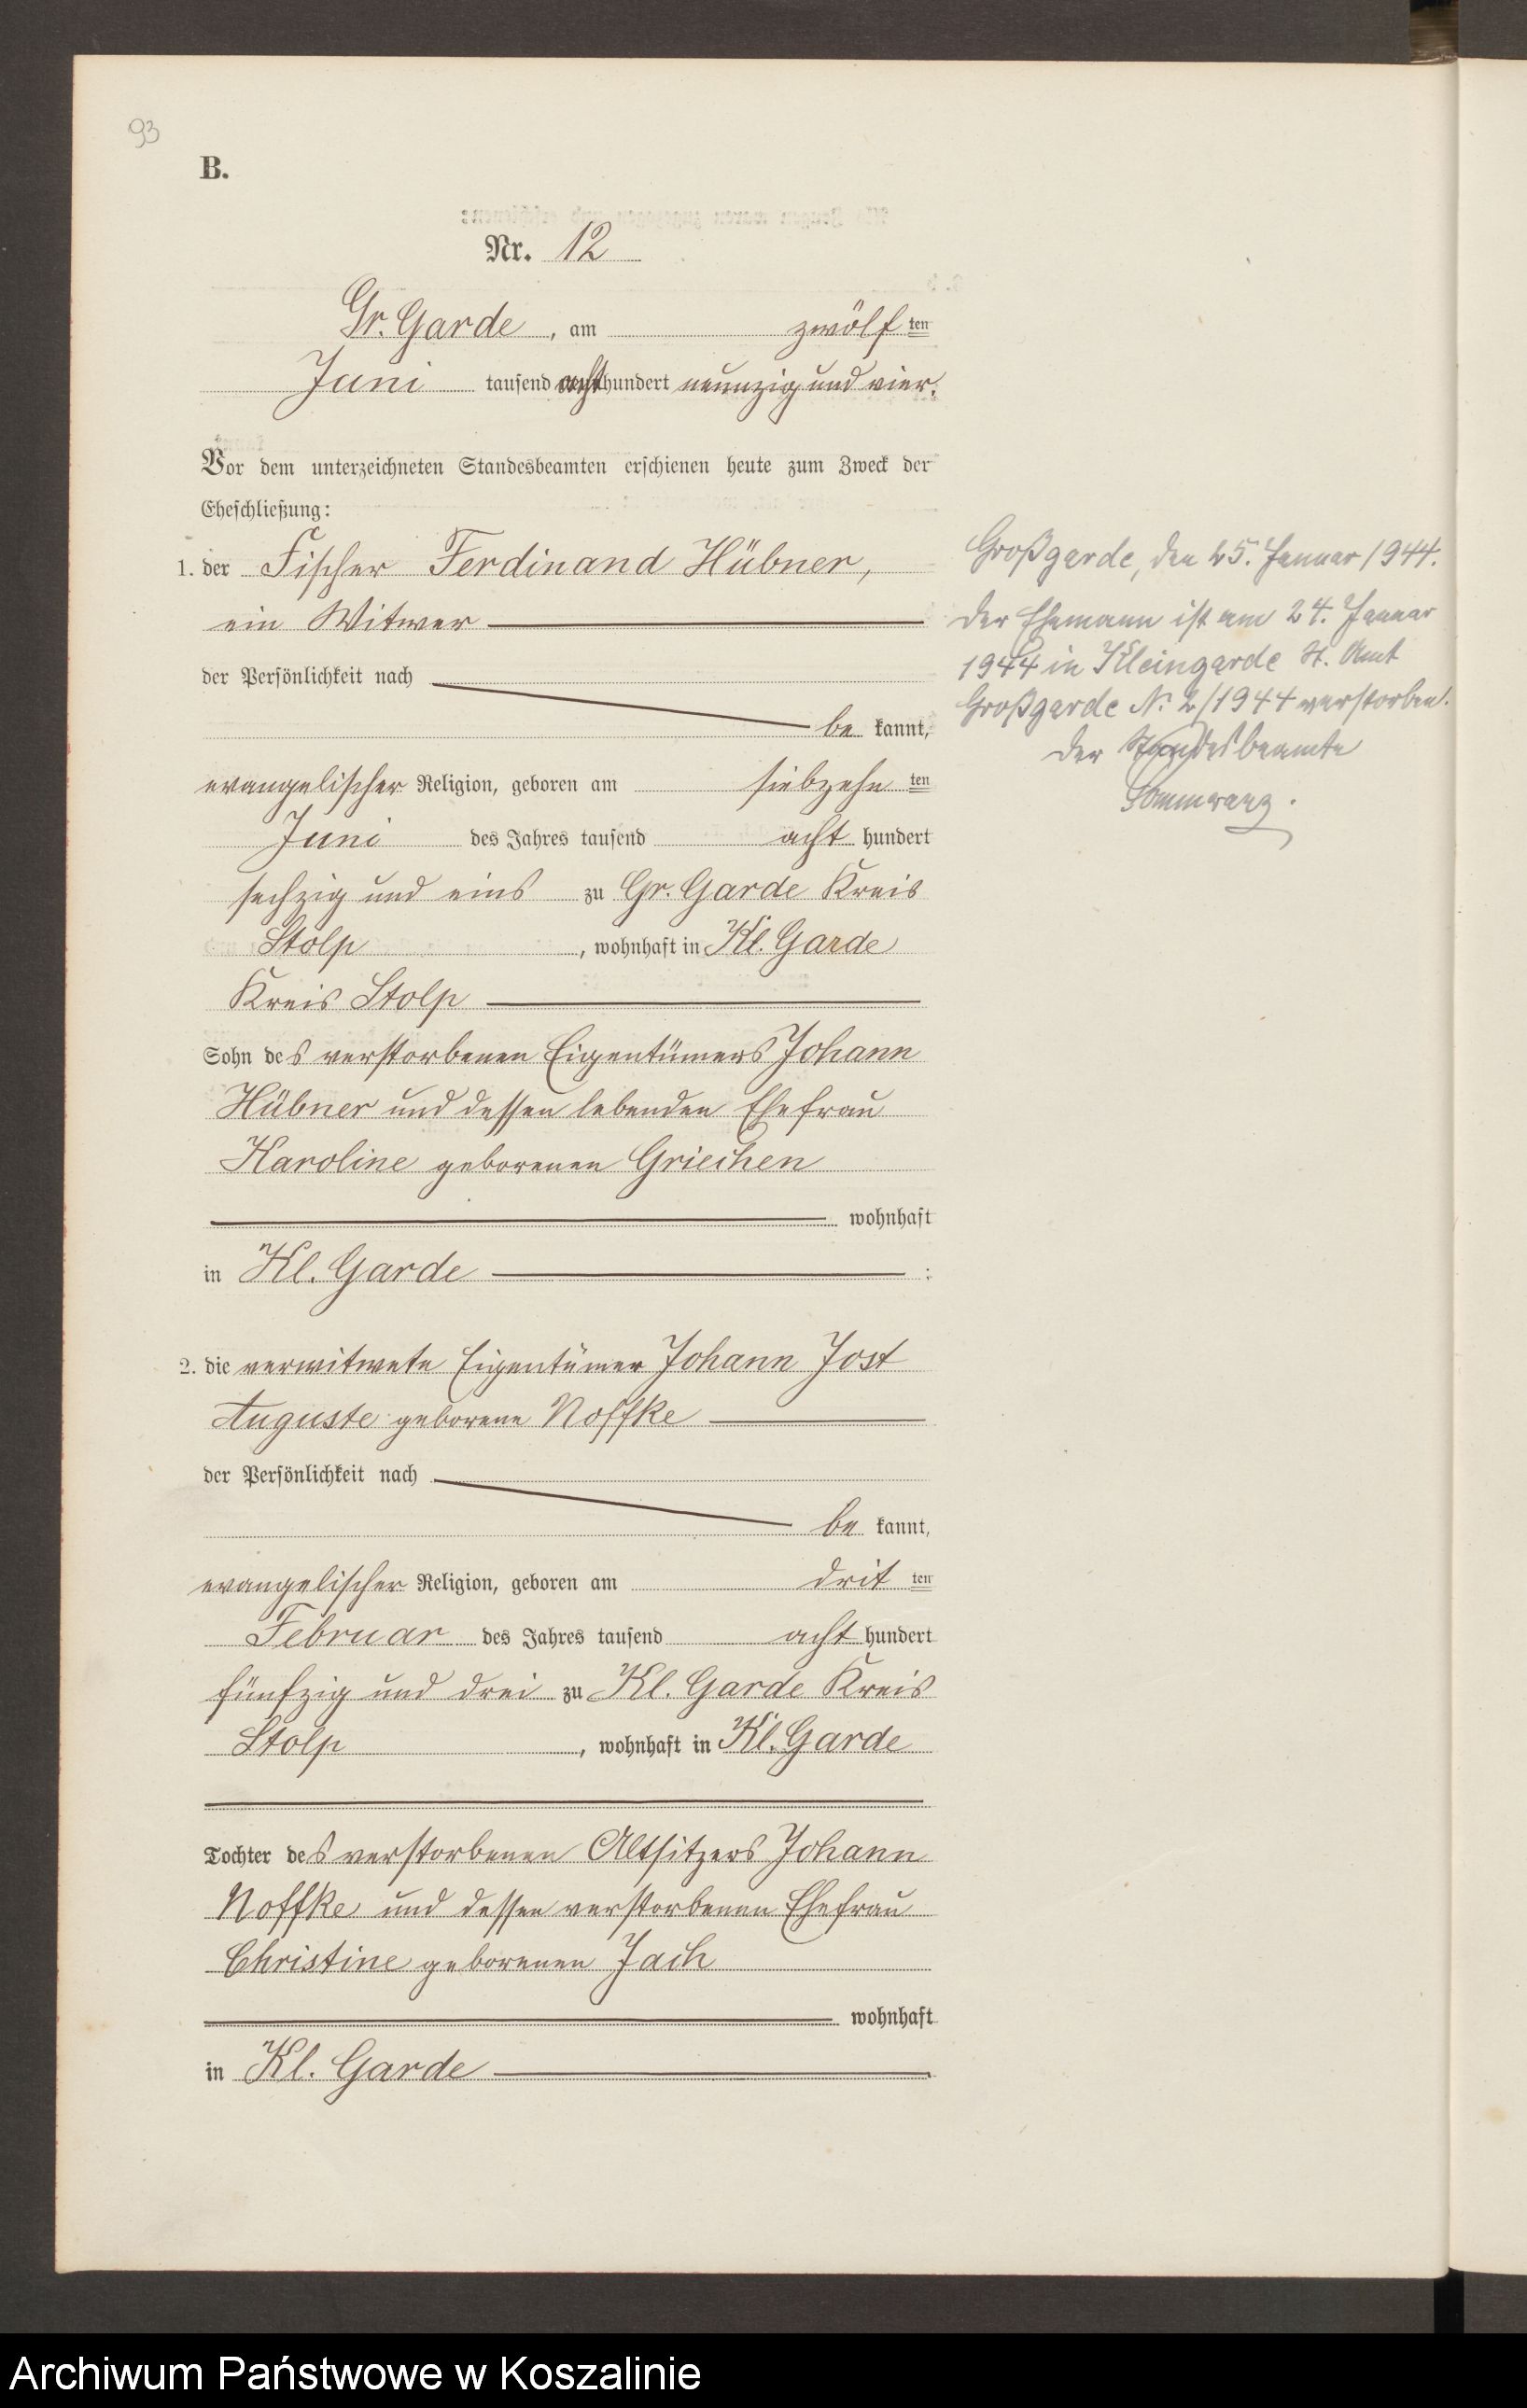 93
B.
Nr. 12
Gr. Garde, am zwölften
Juni tausend achthundert neunzig und vier.
Vor dem unterzeichneten Standesbeamten erschienen heute zum Zweck der
Eheschließung:
1. der Fischer Ferdinand Hübner,
ein Witwer
der Persönlichkeit nach
be kannt,
evangelischer Religion, geboren am siebzehn ten
Juni des Jahres tausend acht hundert
sechzig und eins zu Gr. Garde Kreis
Stolp, wohnhaft in Kl. Garde
Kreis Stolp
Sohn des verstorbenen Eigentümers Johann
Hübner und dessen lebenden Ehefrau
Karoline geborenen Griechen
wohnhaft
in Kl. Garde :
2. die verwitwete Eigentümer Johann Jost
Auguste geborene Noffke
der Persönlichkeit nach
be kannt,
evangelischer Religion, geboren am drit ten
Februar des Jahres tausend acht hundert
fünfzig und drei zu Kl. Garde Kreis
Stolp, wohnhaft in Kl. Garde
Tochter des verstorbenen Altsitzers Johann
Noffke und dessen verstorbenen Ehefrau
Christine geborenen Jach
wohnhaft
in Kl. Garde
Großgarde, den 25. Januar 1944.
Der Ehemann ist am 24. Januar
1944 in Kleingarde St. Amt
Großgarde Nr 2/1944 verstorben.
Der Standesbeamte
Archiwum Państwowe w Koszalinie